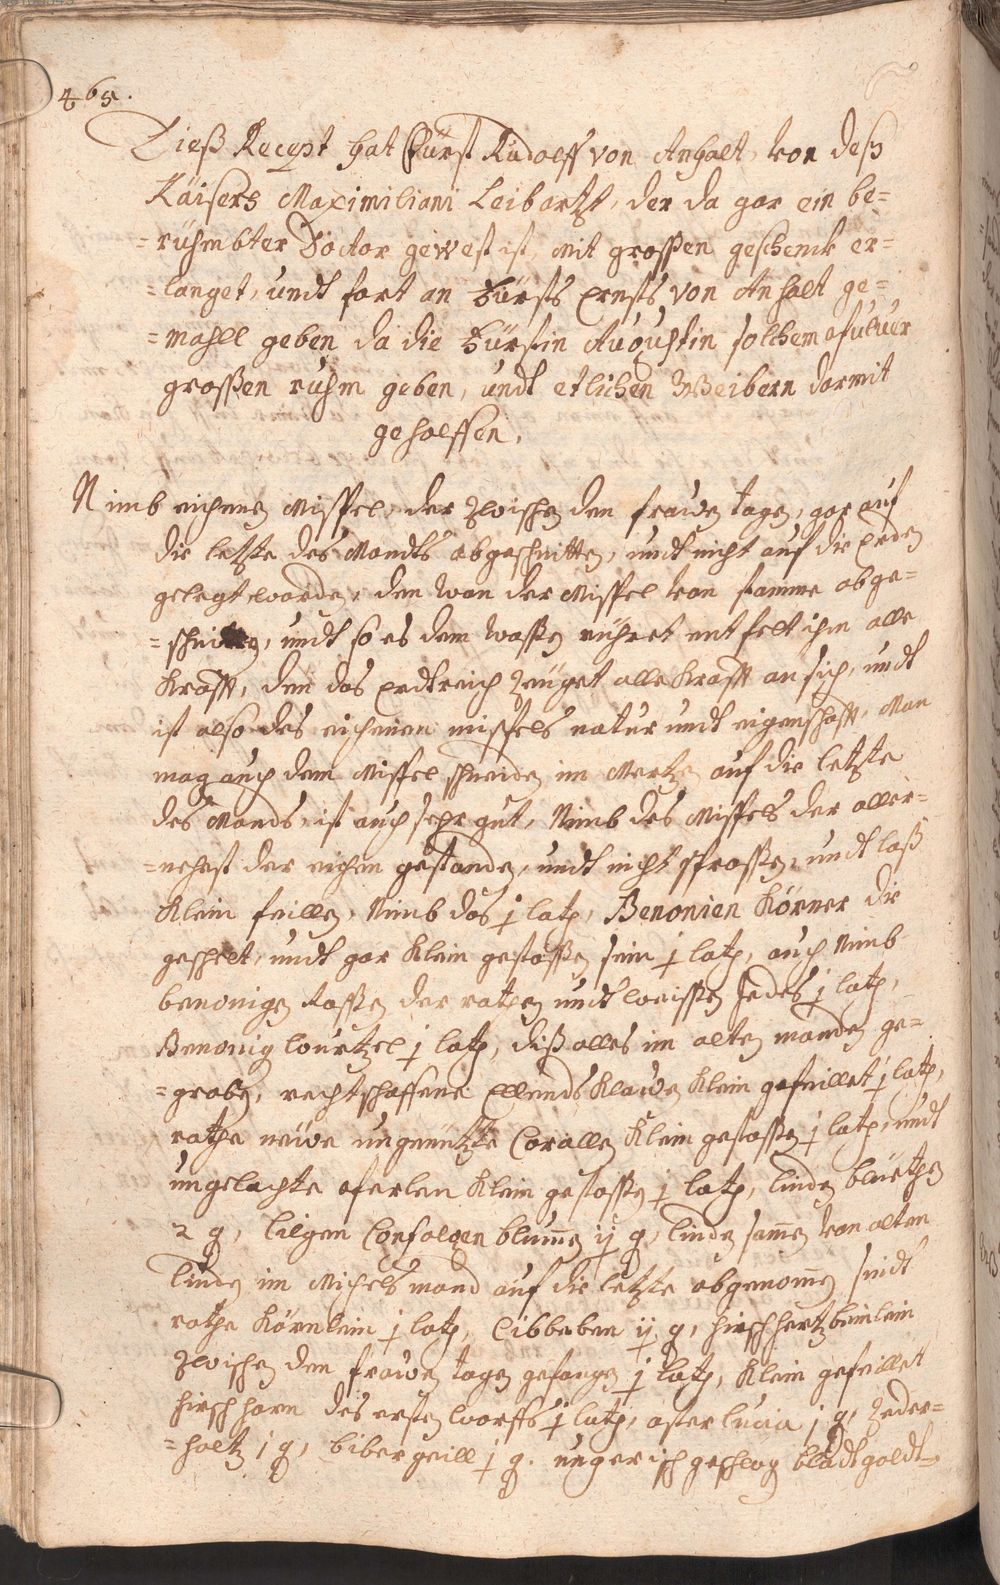 465.
Dieß Recept hat Fürst Rudolff von Anhalt, von deß
Käisers Maximiliani Leibartzt, der da gar ein be=
=rühmbter Doctor gewest ist, mit grossen geschenck er=
=langet, undt fort an Fürsts Ernsts von Anhalt ge=
=mahll geben da die Fürstin Augustin solchem pfulver
grossen ruhm geben, undt etlichen Weibern darmit
geholffen.
Nimb eichenen Misspel, der zwischen den frauen tagen, gar auf
die letzte des Mondts abgeschnitten, undt nicht auf die Erden
gelegt worden, den wan der Misspel von stamme abge=
=schnitten, undt so es dem wassen rühret entfelt ihm alle
Krafft, den das Erdtreich zeuget alle Krafft an sich, undt
ist also des eichenen misspels natur undt eigenschafft, Man
mag auch dem Misspel schneiden im Mertzen auf die letzte
des Monds, ist auch sehr gut, Nimb des Misspels der aller=
=nehest der eichen gestanden, undt nicht sprossen, undt laß
Klein feillen, Nimb das j loth, Benonien Körner die
geschelt, undt gar Klein gestossen sein j loth, auch Nimb
benonigen Rossen der rothen undt weissen Jedes j loth,
Benonig wurtzel j loth, diß alles im alten monden ge=
=graben, rechtschaffene Ellends Klauen Klein gefeillet j loth,
rothe neüe ungenützte Corallen Klein gestossen j loth, undt
ungelochte perlen Klein gestossen j loth, linden blüethen
2 q, lilgen Confalgen blumen ij q, linden samen von alten
linden im Michels mond auf die letzte abgenommen sindt
rothe Körnlein j loth, Cibbeben ij q, hirschhertzbeinlein
zwischen den frauen tagen gefangen j loth, Klein gefeillet
hirschhorn des ersten worffs j loth, osterlucia j q, Zeder=
=holtz j q, bibergeill j q. ungerisch geschlagen bladtgoldt=